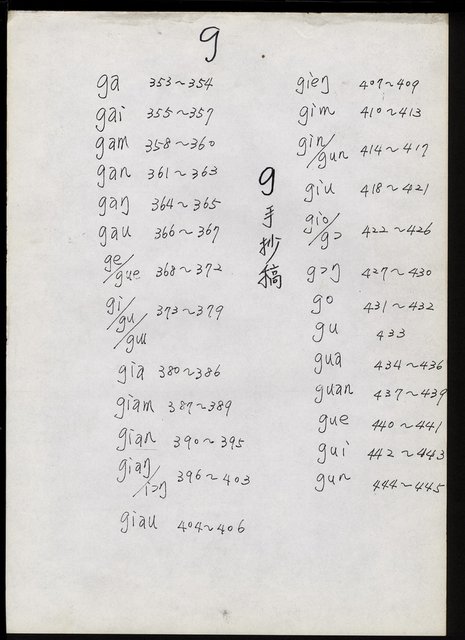 g
ga 353~354
gai 355~357
gam 358~360
gan 361~363
gaŋ 364~365
gau 366~367
ge/gue 368~372
gi/gu/gɯ 373~379
gia 380~386
giam 387~389
gian 390~395
giaŋ/iɔŋ 396~403
giau 404~406
g手抄稿
gieŋ 407~409
gim 410~413
gin/gun 414~417
giu 418~421
gio/gɔ 422~426
gɔŋ 427~430
go 431~432
gu 433
gua 434~436
guan 437~439
gue 440~441
gui 442~443
gun 444~445